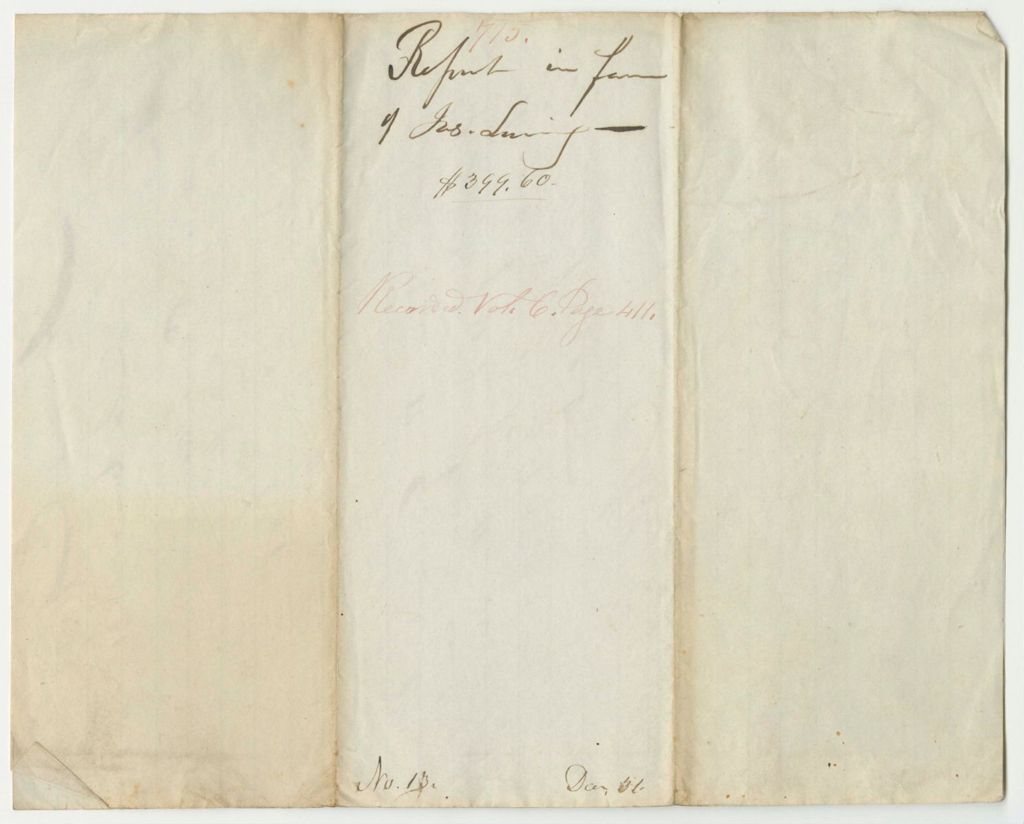 715.
Report in favor
of Jas. Loring —
$399.60.
Recorded. Vol. 6. Page 411.
No. 13.